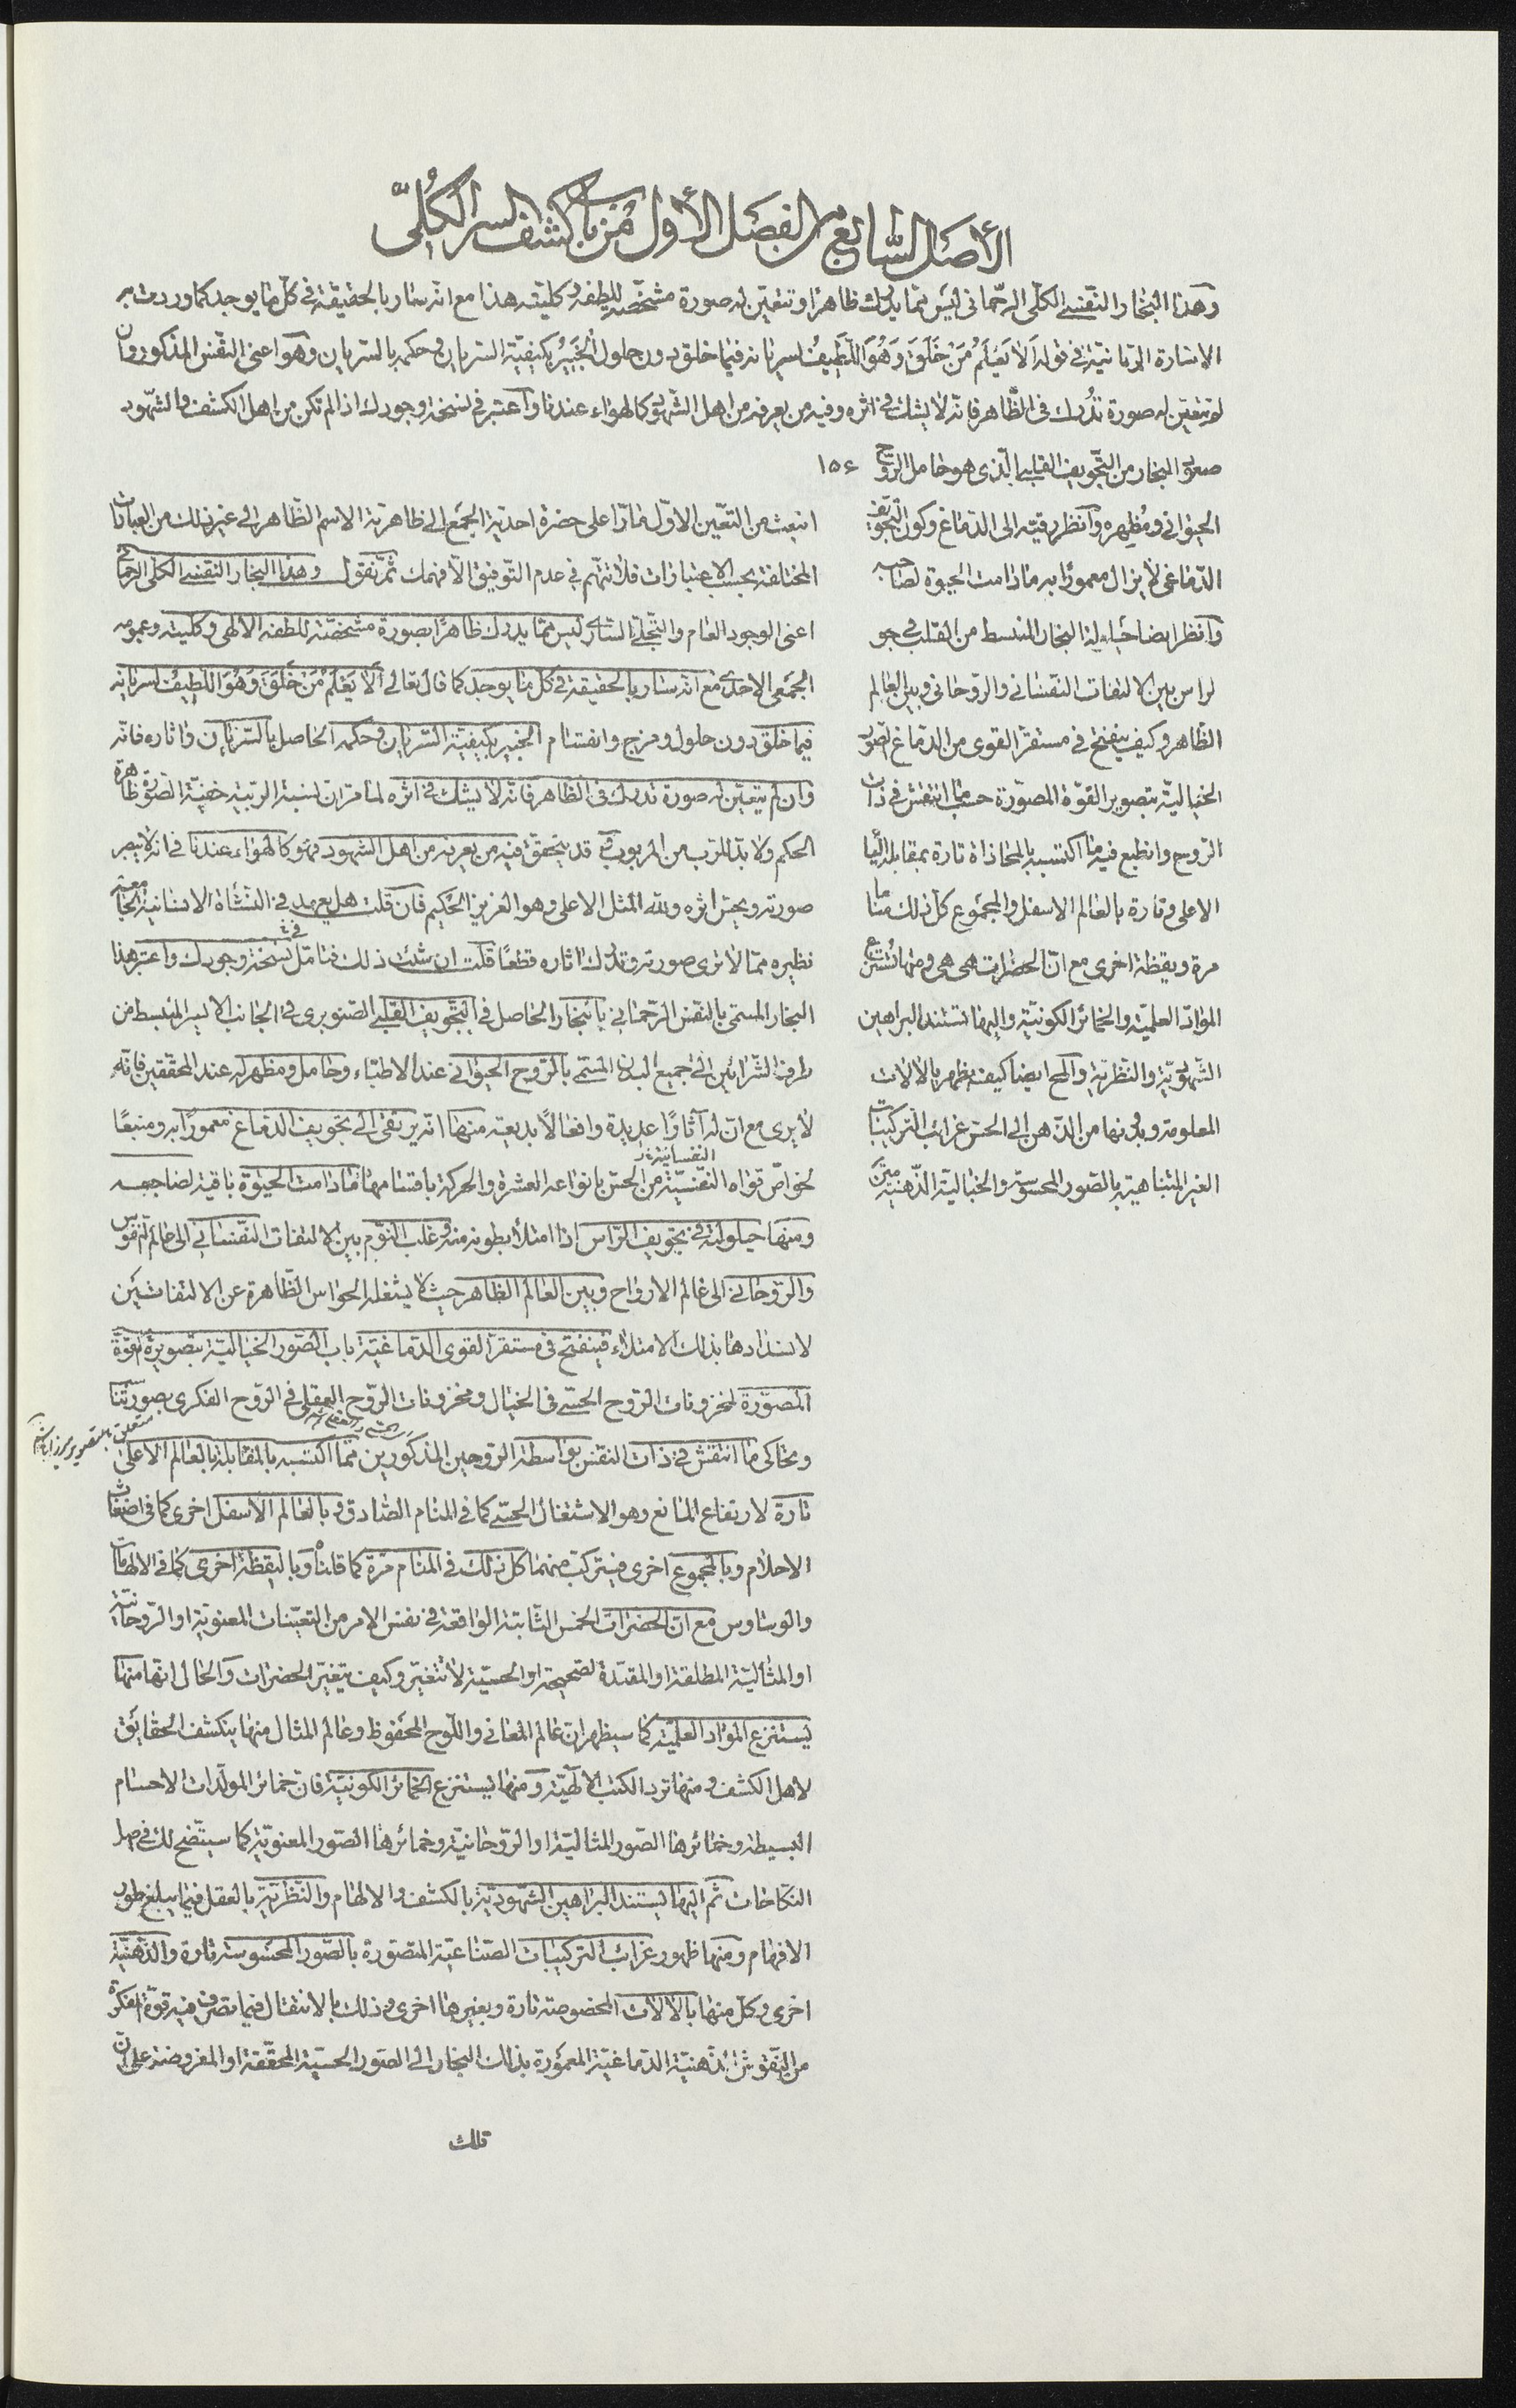 الأصل السابع من الفصل الأول من باب كشف السر الكلّي
وهذا البخار النفسي الكلّي الرحماني ليس مما يدرك ظاهرا وتتعين له صورة مشخّصة للطفه وكليته هذا مع انه سار بالحقيقة في كل ما يوجد كما وردت به
الاشارة الربانية في قوله اَلاٰ يَعْلَمُ مَنْ خَلَقَ وَهُوَ اللَّطِيفُ لسريانه فيما خلق دون حلول الْخَبِيرُ بكيفيّة السريان وحكمه بالسريان وهو اعنى النفس المذكور وان
لم تتعيّن له صورة تُدرك فى الظّاهر فانّه لا يشك في اثره وفيه من يعرفه من اهل الشهود كالهواء عندنا واعتبر في نسخة وجودك اذا لم تكن من اهل الكشف والشّهود
صعود البخار من التّجويف القلبى الّذى هو حامل الروح ١٥٤
الحيوانى ومُظهره وانظر رقيّه الى الدّماغ وكون التجويف
الدّماغى لا يزال معمورًا به ما دامت الحيوة لصاحبه
وانظر ايضا حيلولة البخار المنبسط من القلب في جو
لراس بين الالتفات النّفسانى والرّوحانى وبين العالم
الظّاهر وكيف ينفتح فى مستقرّ القوى من الدماغ الصور
الخياليّة بتصوير القوّة المصوّرة حسب ما انتقش في ذات
الرّوح وانطبع فيه ما اكتسبه بالمحاذاة تارة بمقابلة
الاعلى وتارة بالعالم الاسفل والمجموع كل ذلك مناما
مرة ويقظة اخرى مع انّ الحضرات هى هى ومنها
الموادّ العلميّة والخمائر الكونيّة واليها تستند البراهين
الشهوديّة والنّظريّة والمح ايضا كيف يظهر بالالات
المعلومة وبدونها من الذّهن الى الحسّ غرائب التركيبات
الغير المتناهية بالصّور المحسوسة والخياليّة الذّهنيّة
انبعث من التعيّن الاوّل مارّا على حضرة احديّة الجمع الى ظاهريّة الاسم الظّاهر الى غير ذلك من العبارات
المختلفة بحسب الاعتبارات فلا تتّهم فى عدم التّوفيق الّا فهمك ثمّ نقول وهذا البخار النفسى الكلى الرحماني
اعنى الوجود العام والتّجلّى السّارى ليس ممّا يدرك ظاهرًا بصورة مشخّصة للطفه الالهى وكليته وعمومه
الجمعى الاحدى مع انّه سار بالحقيقة فى كل ما يوجد كما قال تعالى اَلا يَعْلَمُ مَنْ خَلَقَ وَهُوَ اللَّطيفُ لسريانه
فيما خلق دون حلول ومزج وانقسام الخبير بكيفيّة السّريان وحكمه الحاصل بالسّريان واثاره فانّه
وان لم يتعيّن له صورة تدرك فى الظاهر فانّه لا يشك فى اثره لما مرّ ان نسبة الربّيّة خفيّة الصّورة ظاهرة
الحكم ولا بدّ للرّب من المربوب وقد يتحقّق فيه من يعرفه من اهل الشهود فهو كالهواء عندنا في انه لا يبصر
صورته ويحسّ اثره ولله المثل الاعلى وهو العزيز الحكيم فان قلت هل يوجد فى النّشأة الانسانية الجامعة
نظيره ممّا لا ترى صورته وتدرك اثاره قطعًا قلت ان شئت ذلك فتامّل فى نسخة وجودك واعتبر هذا
البخار المسمى بالنفس الرّحمانى بالبخار الحاصل فى التّجويف القلبى الصّنوبرى فى الجانب الايسر المنبسط من
طرف الشّرائين الى جميع البدن المسمّى بالرّوح الحيوانى عند الاطبّاء وحامل ومظهر له عند المحقّقين فانّه
لا يرى مع انّ له آثارًا عديدة وافعالًا بديعة منها انّه يرتقى الى تجويف الدّماغ معمورًا به ومنبعًا
النفسانية
لخواصّ قواه النفسيّة من الحسّ بانواعه العشرة والحركة باقسامها ما دامت الحيوة باقية لصاحبه
ومنها حيلولته فى تجويف الرّاس اذا امتلأ بطونه منه وغلب النّوم بين الالتفات النّفسانى الى عالم النفوس
والرّوحانى الى عالم الارواح وبين العالم الظاهر حيث لا يشغله الحواس الظّاهرة عن الالتفاتين
لانسدادها بذلك الامتلاء فينفتح فى مستقرّ القوى الدّماغيّة باب الصّور الخياليّة بتصويره القوّة
المصوّرة لمخزونات الرّوح الحسّى فى الخيال ومخزونات الرّوح العقلى فى الرّوح الفكرى بصورتنا
ويحاكى ما انتقش فى ذات النفس بواسطة الرّوحين المذكورين ممّا اكتسبه بالمقابلة بالعالم الاعلى
تارة لارتفاع المانع وهو الاشتغال الحسّى كما فى المنام الصّادق وبالعالم الاسفل اخرى كما فى اضغاث
الاحلام وبالمجموع اخرى فيتركّب منهما كل ذلك فى المنام مرّة كما قلنا وباليقظة اخرى كما فى الالهامات
والوساوس مع انّ الحضرات الخمس الثّابتة الواقعة فى نفس الامر من التعيّنات المعنويّة او الرّوحانيّة
او المثاليّة المطلقة او المقيّدة لصحيحة او الحسيّة لا تتغيّر وكيف يتغيّر الحضرات والحال انّها منها
يستنزع الموادّ العلميّة كما سيظهر ان عالم المعانى واللّوح المحفوظ وعالم المثال منها ينكشف الحقايق
لاهل الكشف ومنها ترد الكتب الالهيّة ومنها يستنزع الخمائر الكونيّة فان خمائر المولّدات الاجسام
البسيطة وخمائرها الصّور المثاليّة او الرّوحانيّة وخمائرها الصّور المعنويّة كما سيتّضح لك فى
النكاحات ثم اليها يستند البراهين الشّهوديّة بالكشف والالهام والنّظريّة بالعقل فيما يبلغ طور
الافهام ومنها ظهور غرائب التركيبات الصّناعيّة المتصوّرة بالصّور المحسوسة تارة والذّهنيّة
اخرى وكل منها بالالات المخصوصة تارة وبغيرها اخرى وذلك بالانتقال فيما تصرف فيه قوّة الفكرة
من النّقوش الذّهنيّة الدّماغيّة المعمورة بذلك البخار الى الصّور الحسيّة المحقّقة او المفروضة على ان
تلك